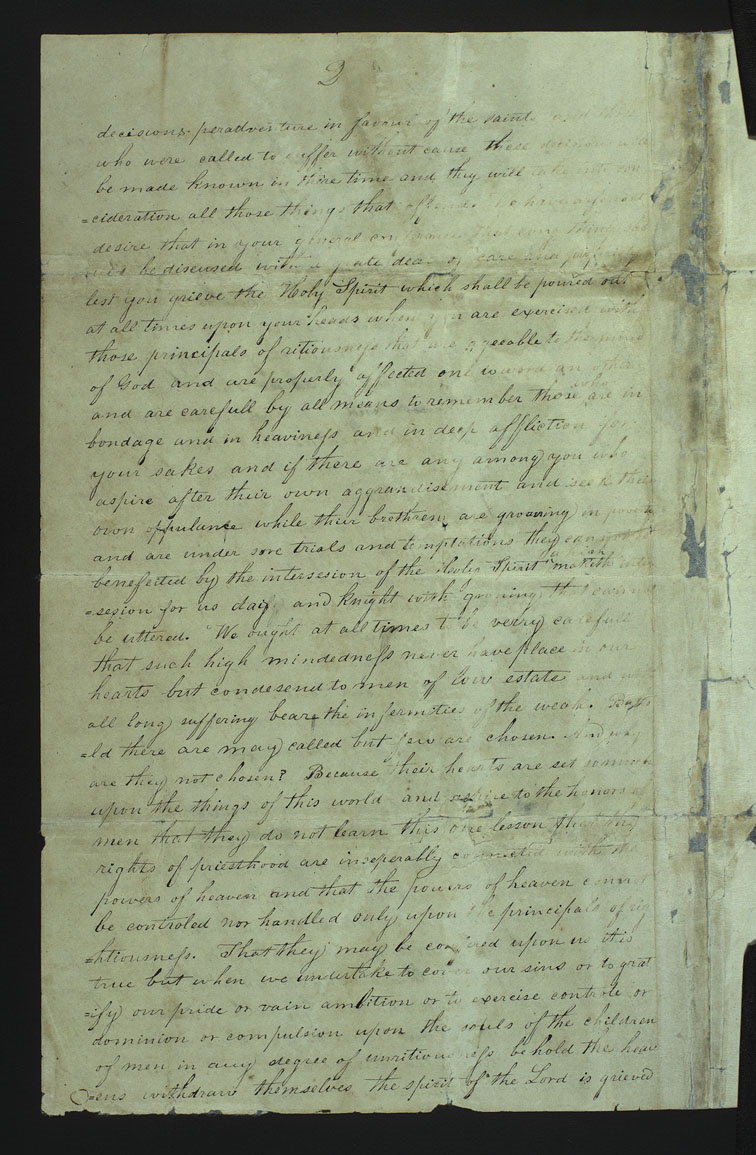 2
decisions peradventure in favour of the saints
who were called to suffer without cause these
be made known in there time and they will
=cideration all those things that offend. We have a
desire that in your general
be discused with a grate deal of care and
lest you grieve the Holy Spirit which shall be poured out
at all times upon your heads when you are exercised with
those principals of ritiousness that are agreeable to the mind
of God and are properly affected one toward another
and are carefull by all means to remember those who are in
bondage and in heaviness and in deep affliction for
your sakes and if there are any among you who
aspire after their own aggrandisement and seek their
own oppulance while their brethren are groaning in
and are under sore trials and temptations they cannot
benefected by the intersesion of the Holy Spirit maketh inter
=sesion for us day and knight with groning that cannot
be uttered. We ought at all times to be verry carefull
that such high mindedness never have place in our
hearts but condesend to men of low estate and with
all long suffering beare the infermities of the weak. Beho
=ld there are may called but few are chosen. And why
are they not chosen? Because their hearts are set so much
upon the things of this world and aspire to the honors of
men that they do not learn this one lesson that the
rights of priesthood are inseperably connected with the
powers of heaven and that the powers of heaven cannot
be controled nor handled only upon the principals of rig
=htiousness. That they may be confered upon us it is
true but when we undertake to cover our sins or to grat
=ify our pride or vain ambition or to exercise controle or
dominion or compulsion upon the souls of the children
of men in any degree of unritiousness behold the heav
=ens withdraw themselves the spirit of the Lord is grieved